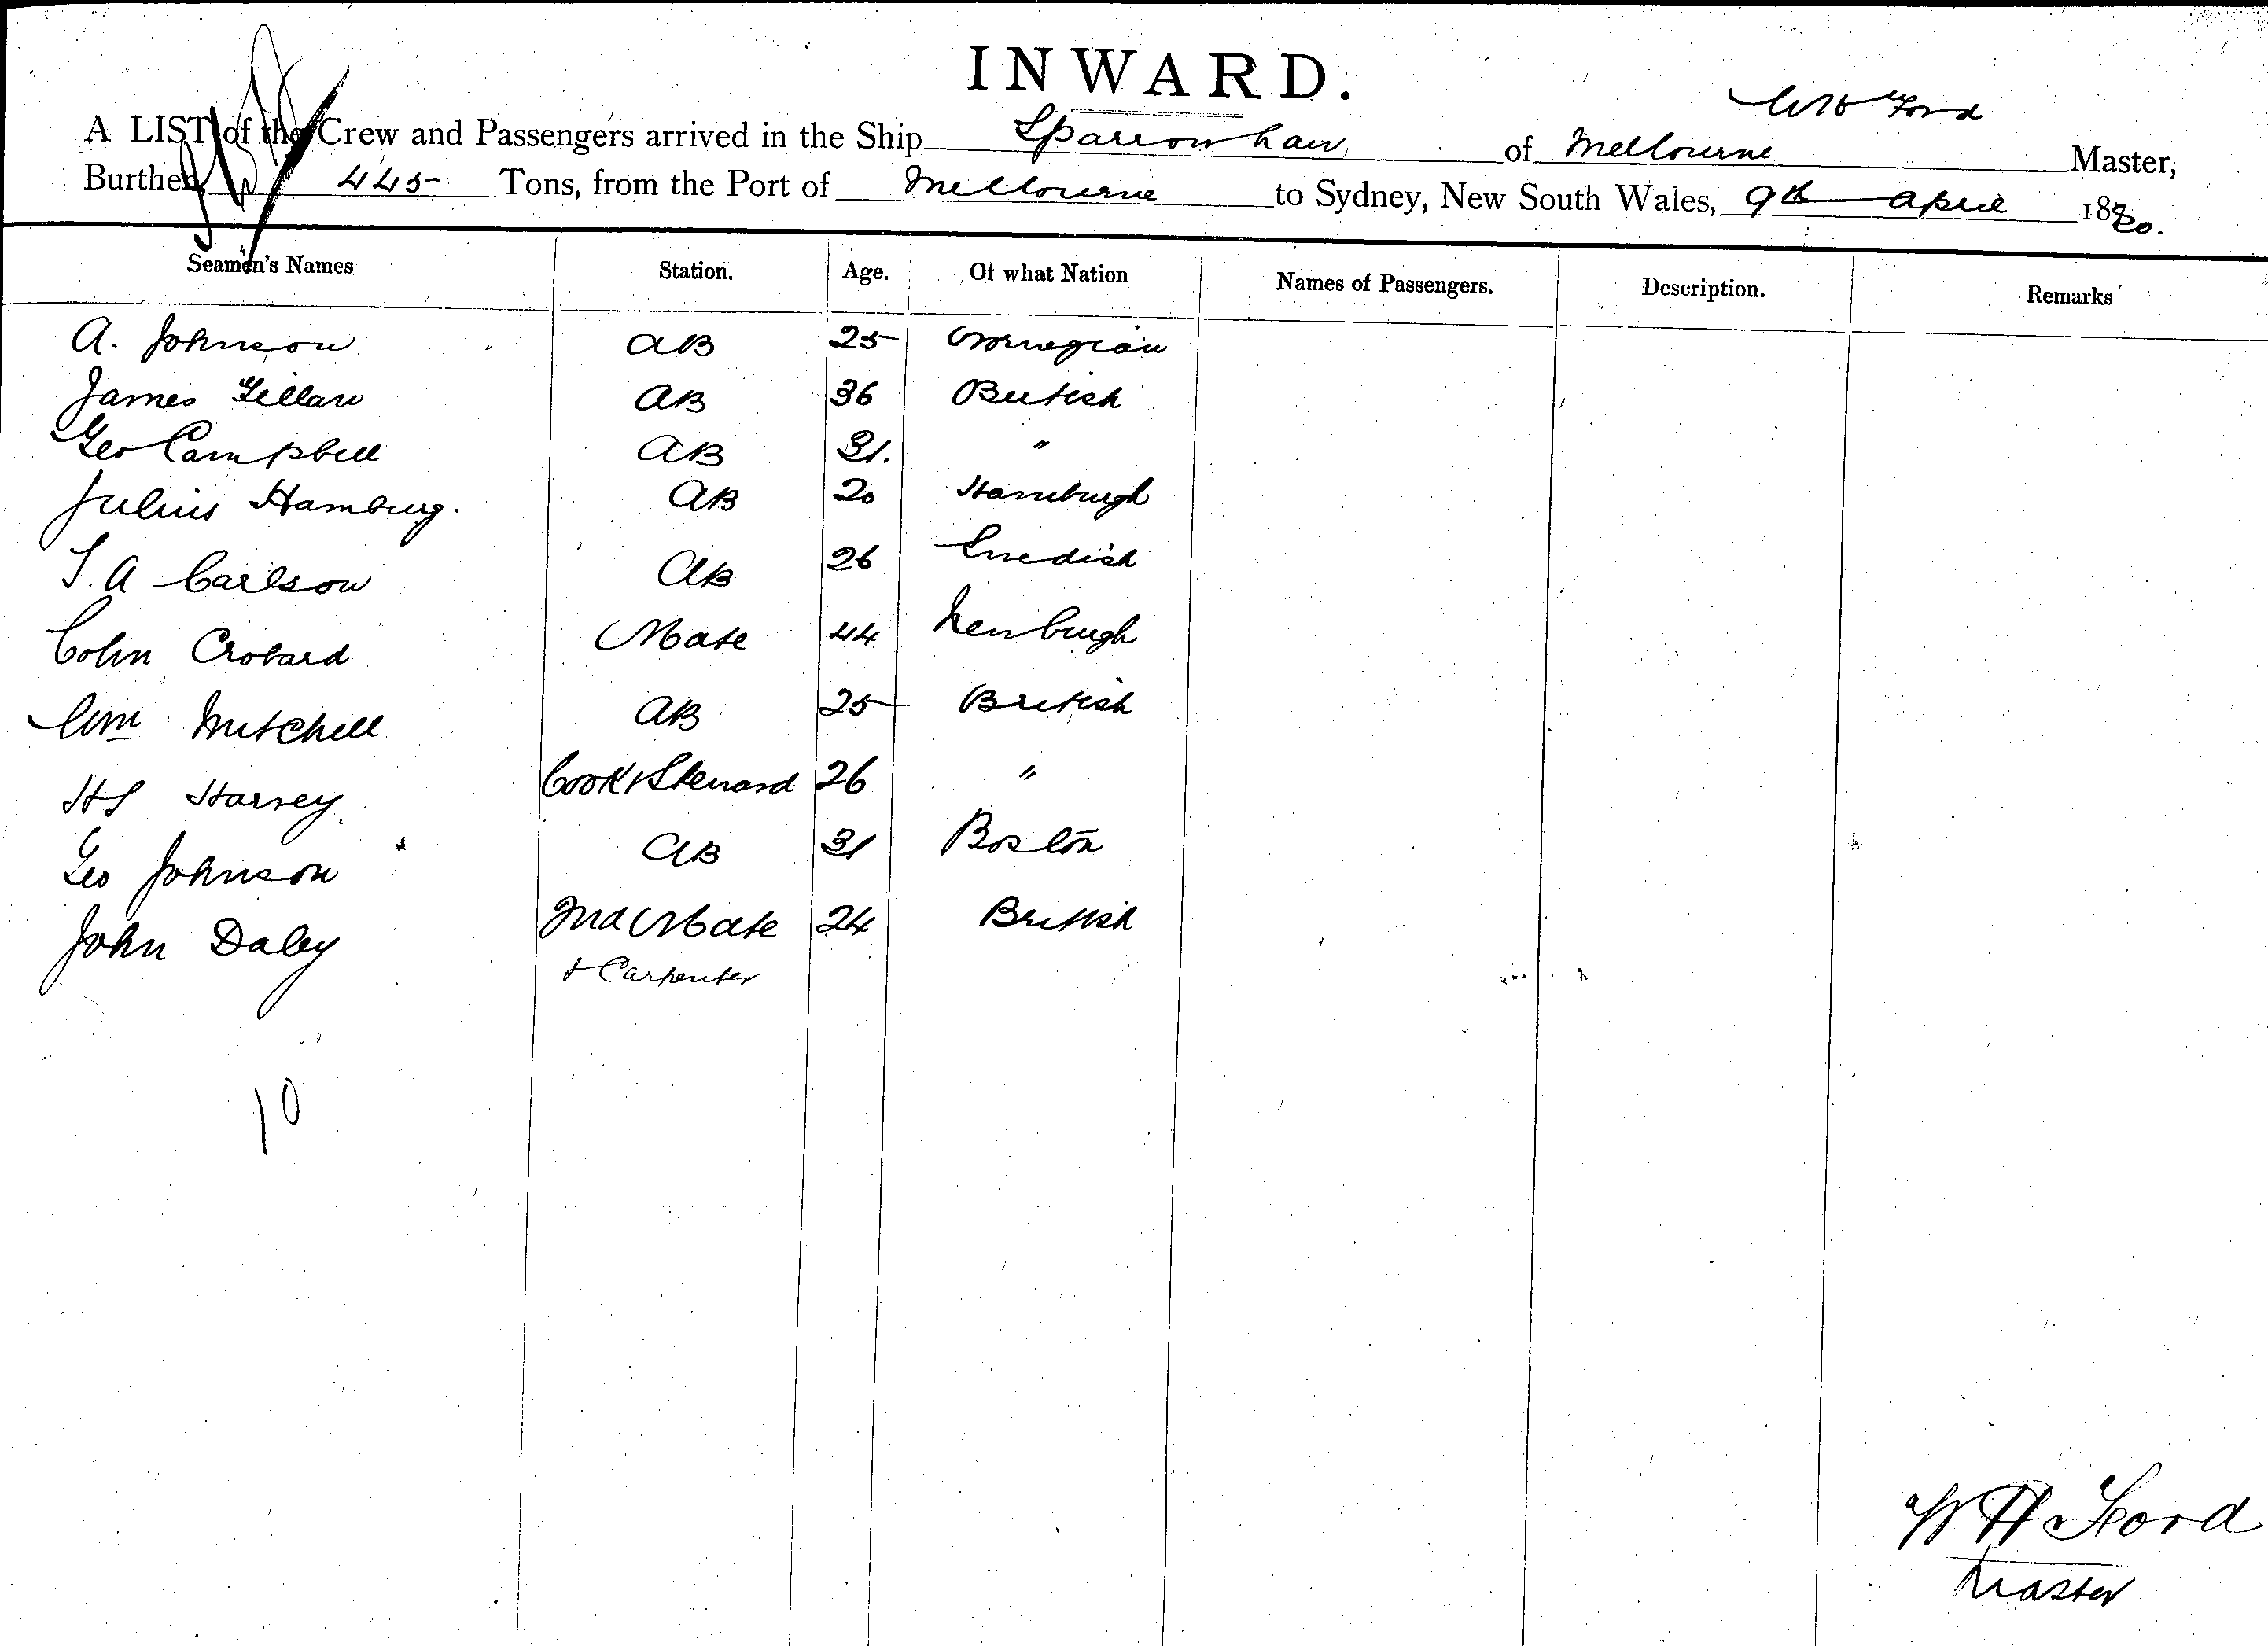 INWARD.
W H Ford
A LIST of the Crew and Passengers arrived in the Ship Sparrowhawk of Melbourne Master,
Burthen 445 Tons, from the Port of Melbourne to Sydney, New South Wales, 9th April 1880.
Seamen's Names Station. Age. Of what Nation Names of Passengers. Description. Remarks
A. Johnson AB 25 Norwegian
James Gillan AB 36 British
Geo Campbell AB 31. "
Julius Hamburg. AB 20 Hamburgh
J. A Carlson AB 26 Swedish
Colin Mate 44
Wm Mitchell AB 25 British
HS Harvey Cook & Steward 26 "
Geo Johnson AB 31 Boston
John Daley 2nd Mate 24 British
+ Carpenter
10
W H Ford
Master